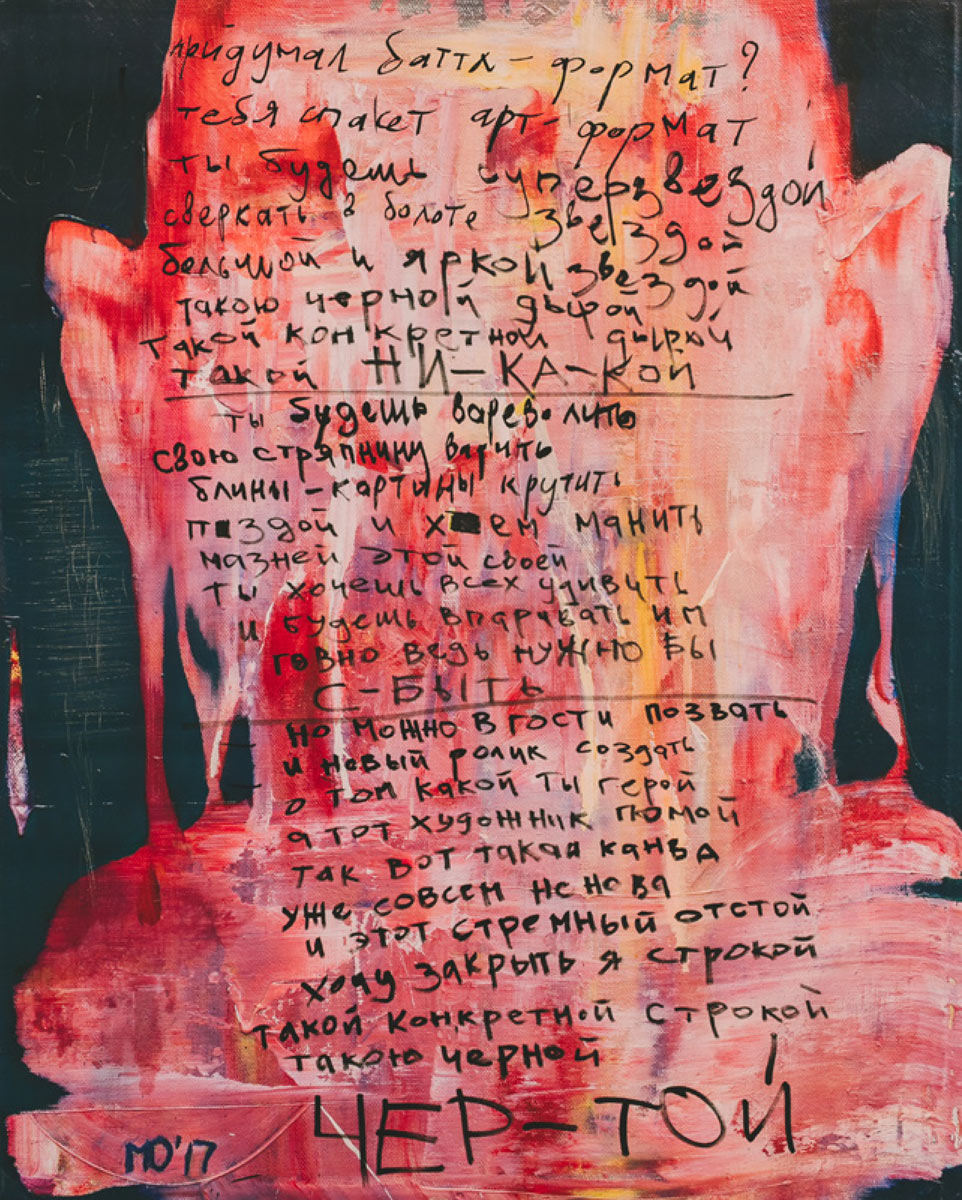 придумал баттл-формат?
тебя спакет арт-формат
ты будешь суперзвездой
сверкать в болоте звездой
большой и яркой звездой
такою черной дырой
такой конкретной дырой
такой НИ-КА-КОЙ
ты будешь варево лить
свою стряпнину варить
блины-картины крутить
п■здой и х■ем манить
мазней этой своей
ты хочешь всех удивить
и будешь впаривать им
говно ведь нужно бы
С-БЫТЬ
но можно в гости позвать
и новый ролик создать
о том какой ты герой
а тот художник
так вот такая канва
уже совсем не нова
и этот стремный отстой
хочу закрыть я строкой
такой конкретной строкой
такою черной
ЧЕР-ТОЙ
МО'17